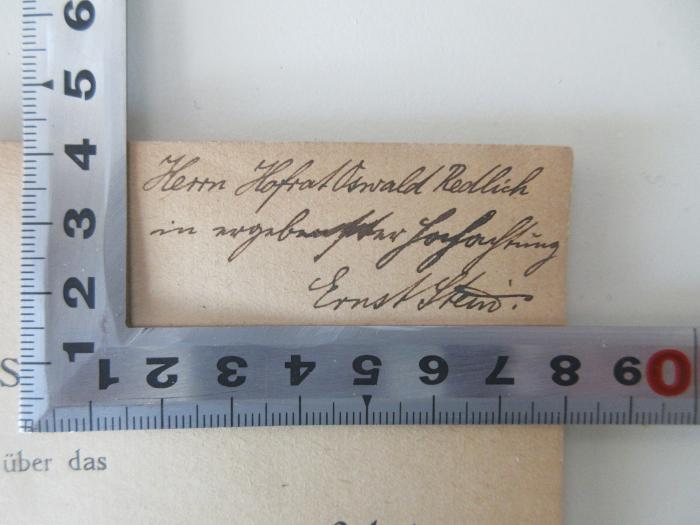 Herrn Hofrat Oswald Redlich
in ergebenster Hochachtung
Ernst Stein.
6
5
4
3
2
1
1 2 3 4 5 6 7 8 9 0
S
über das